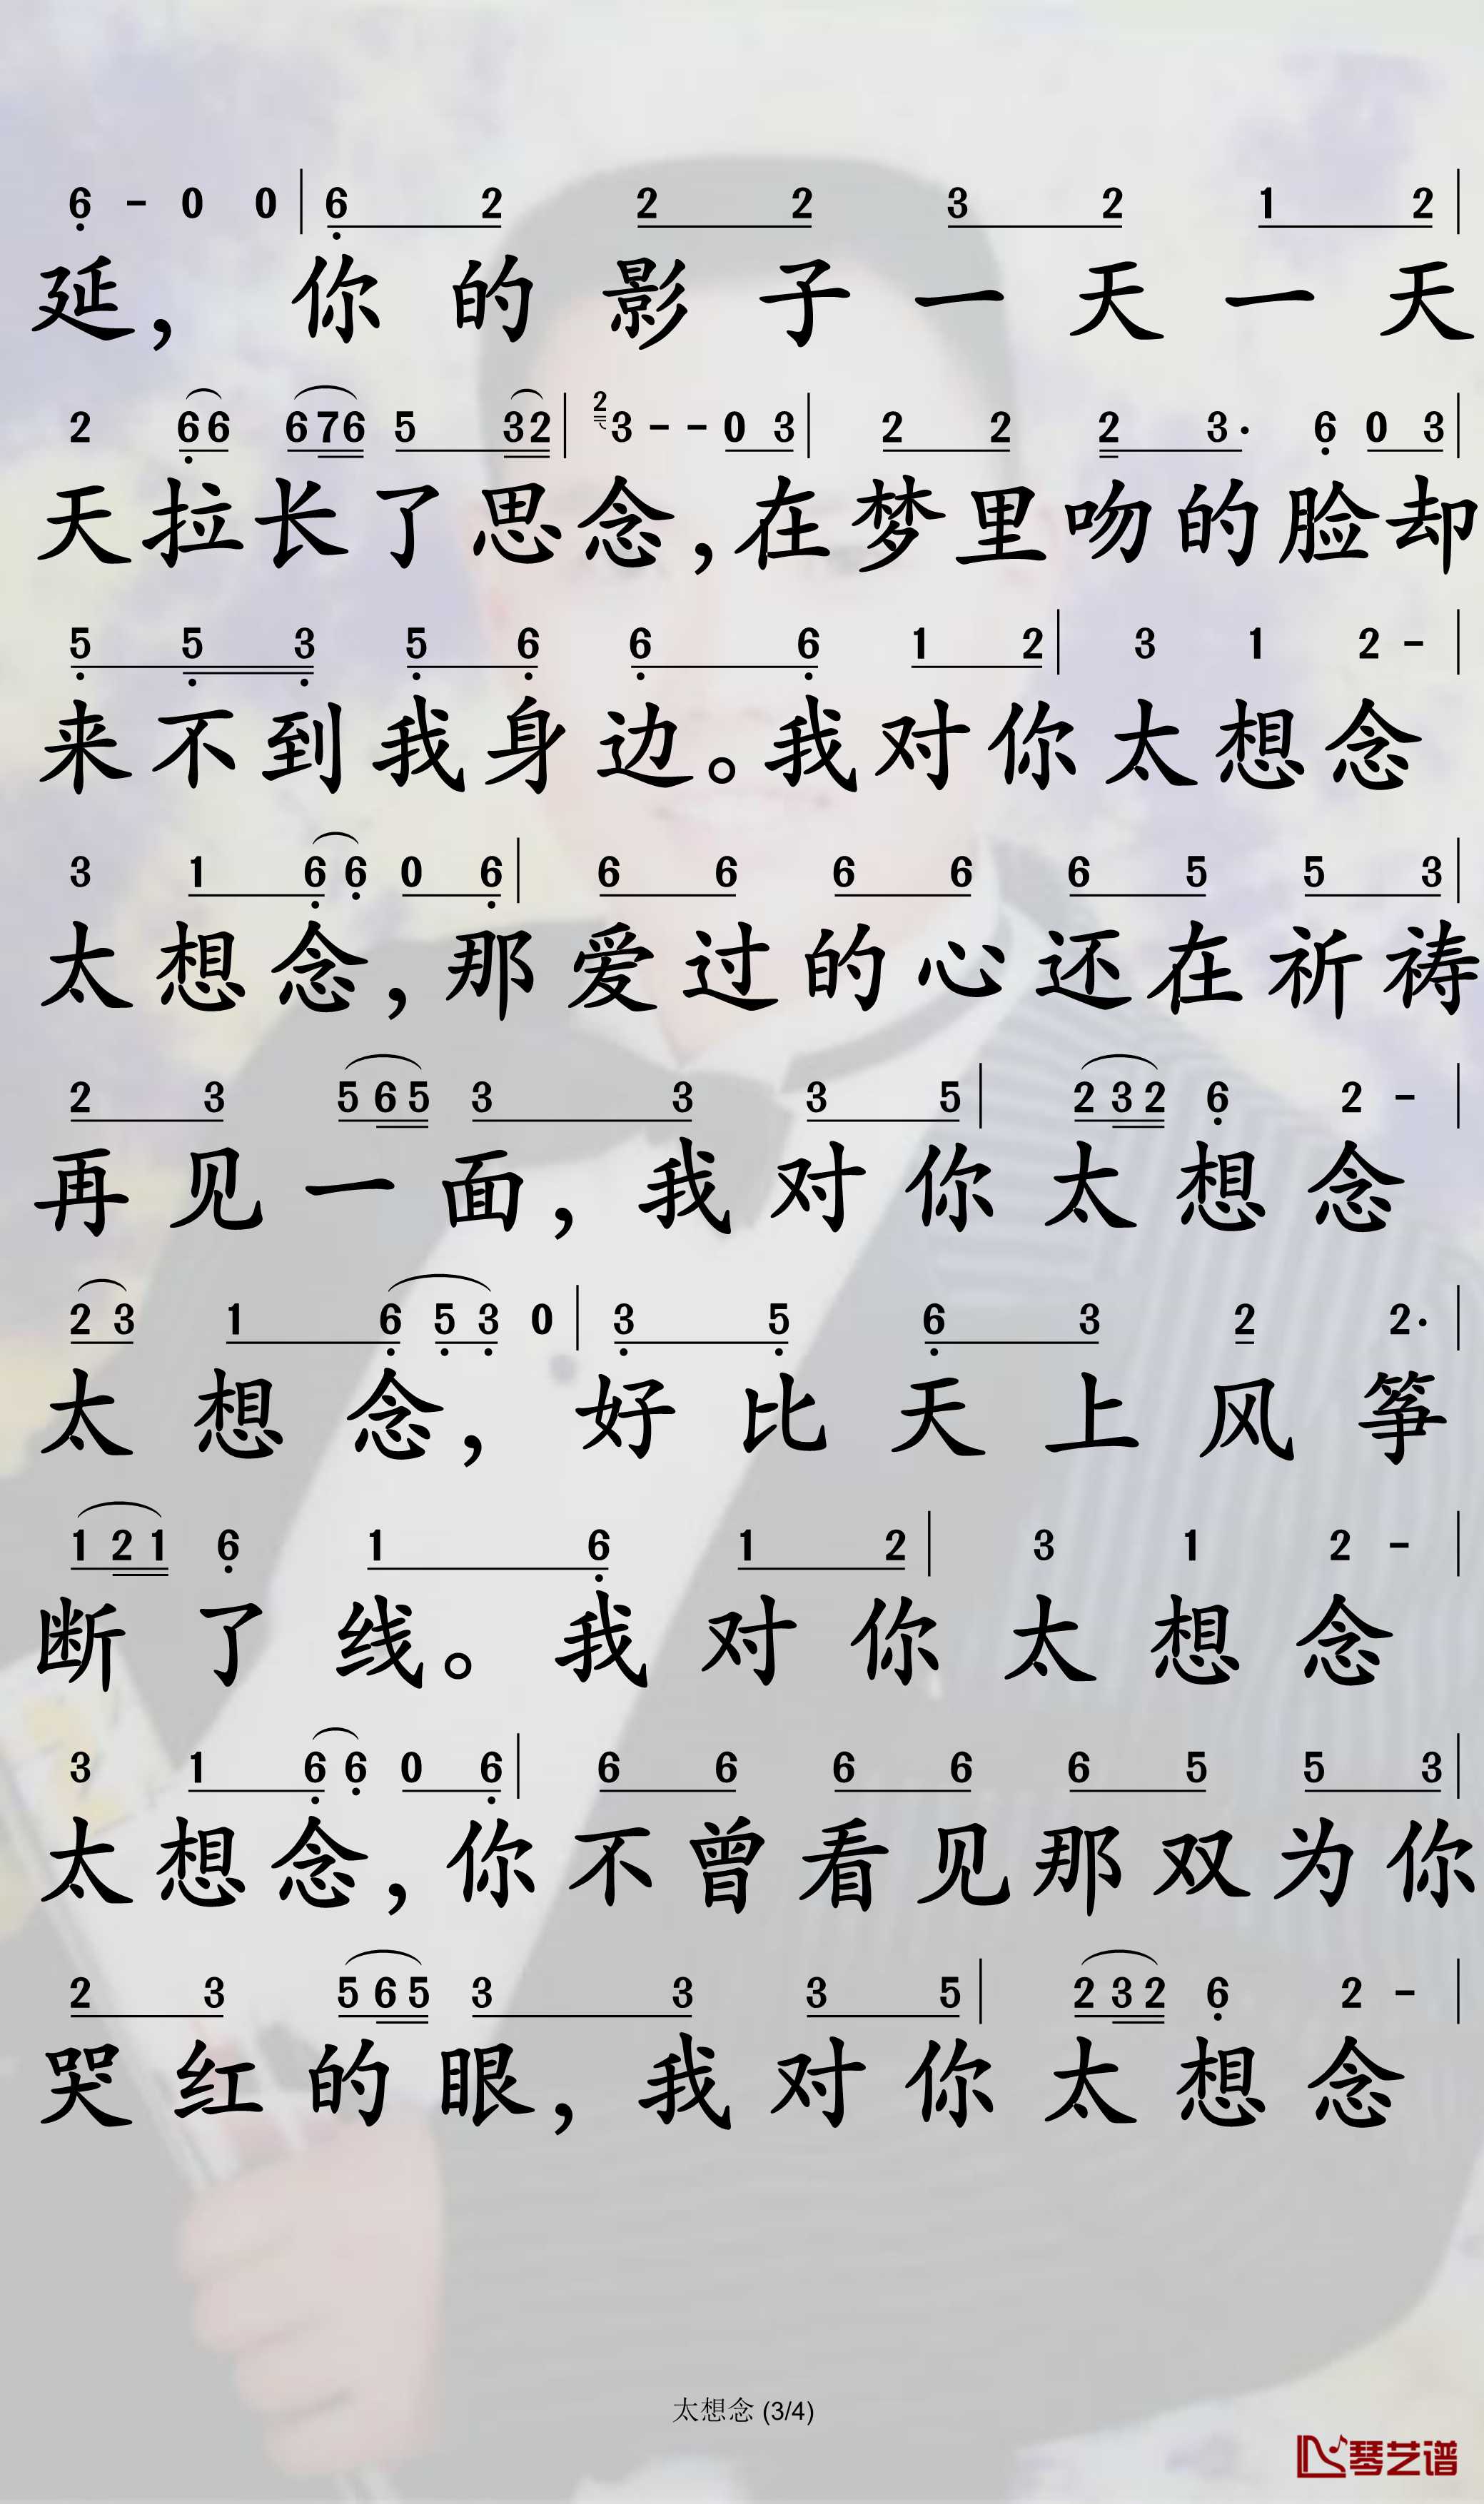 6 - 0 0 | 6 2 2 2 3 2 1 2 |
延， 你 的 影 子 一 天 一 天
2 6 6 6 7 6 5 3 2 | 2 3 - - 0 3 | 2 2 2 3 · 6 0 3 |
天 拉 长 了 思 念，在 梦 里 吻 的 脸 却
5 5 3 5 6 6 6 1 2 | 3 1 2 - |
来 不 到 我 身 边。我 对 你 太 想 念
3 1 6 6 0 6 | 6 6 6 6 6 5 5 3 |
太 想 念，那 爱 过 的 心 还 在 祈 祷
2 3 5 6 5 3 3 3 5 | 2 3 2 6 2 - |
再 见 一 面， 我 对 你 太 想 念
2 3 1 6 5 3 0 | 3 5 6 3 2 2 · |
太 想 念， 好 比 天 上 风 筝
1 2 1 6 1 6 1 2 | 3 1 2 - |
断 了 线。 我 对 你 太 想 念
3 1 6 6 0 6 | 6 6 6 6 6 5 5 3 |
太 想 念，你 不 曾 看 见 那 双 为 你
2 3 5 6 5 3 3 3 5 | 2 3 2 6 2 - |
哭 红 的 眼， 我 对 你 太 想 念
太想念 (3/4)
琴艺谱